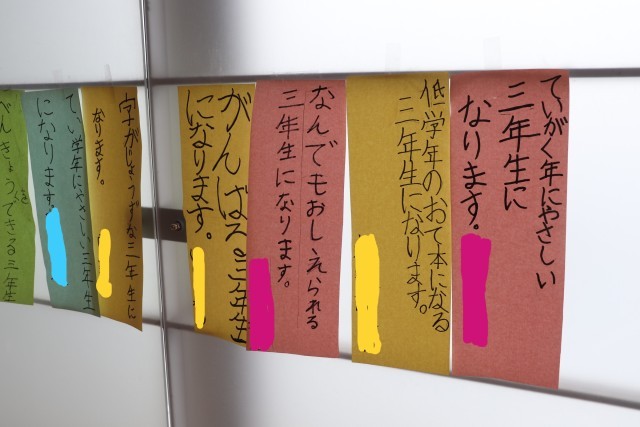 ていがく年にやさしい
三年生に
なります。
低学年のおて本になる
三年生になります。
なんでもおしえられる
三年生になります。
がんばる三年生
になります。
字がじょうずな三年生に
なります。
てい学年にやさしい三年生
になります。
べんきょうをできる三年生